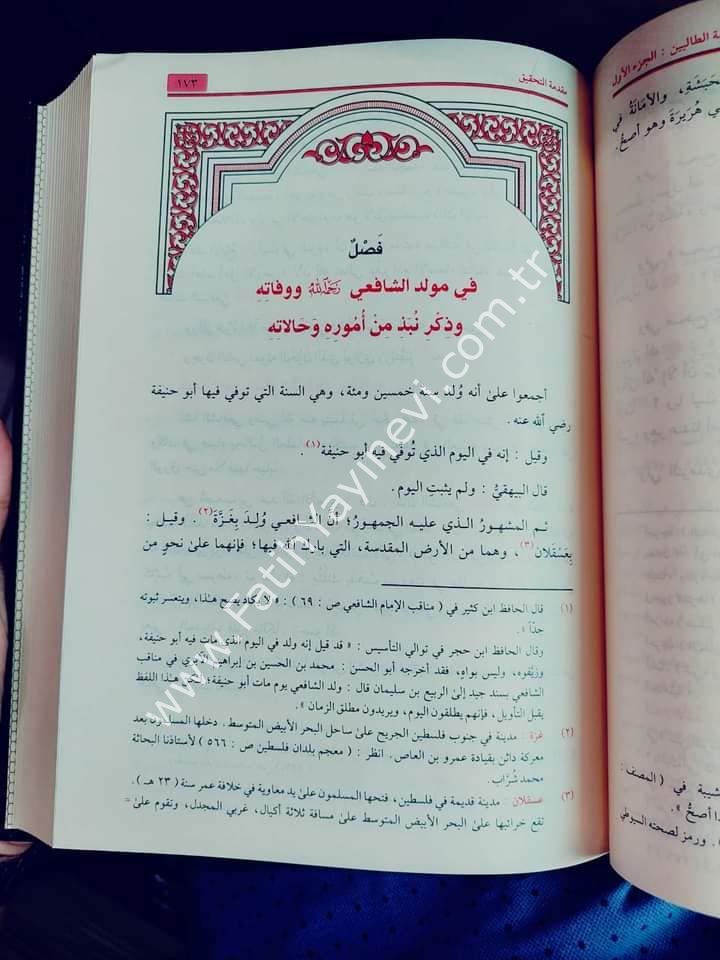 مقدمة التحقيق
١٧٣
فَصْلٌ
في مولد الشافعي رَحِمَهُ اللهُ ووفاتِهِ
وذِكْرِ نُبَذٍ مِنْ أُمُورِهِ وَحَالاتِهِ
أجمعوا علىٰ أنه وُلد سنة خمسين ومئة، وهي السنة التي توفي فيها أبو حنيفة
رضي الله عنه.
وقيل: إنه في اليوم الذي تُوفي فيه أبو حنيفة(١).
قال البيهقيُّ: ولم يثبتِ اليوم.
ثم المشهورُ الذي عليه الجمهورُ؛ أنَّ الشافعي وُلِدَ بِغَزَّةَ(٢). وقيل:
بِعَسْقَلان(٣)، وهما من الأرض المقدسة، التي بارك الله فيها؛ فإنهما علىٰ نحوٍ من
(١) قال الحافظ ابن كثير في (مناقب الإمام الشافعي ص: ٦٩): «لا يكاد يصح هذا، ويتعسر ثبوته
جدّاً».
وقال الحافظ ابن حجر في توالي التأسيس: «قد قيل إنه ولد في اليوم الذي مات فيه أبو حنيفة،
وزيَّفوه، وليس بواهٍ، فقد أخرجه أبو الحسن: محمد بن الحسين بن إبراهيم الآبري في مناقب
الشافعي بسند جيد إلى الربيع بن سليمان قال: ولد الشافعي يوم مات أبو حنيفة، لكن هذا اللفظ
يقبل التأويل، فإنهم يطلقون اليوم، ويريدون مطلق الزمان».
(٢) غزة: مدينة في جنوب فلسطين الجريح علىٰ ساحل البحر الأبيض المتوسط. دخلها المسلمون بعد
معركة دائن بقيادة عمرو بن العاص. انظر: (معجم بلدان فلسطين ص: ٥٦٦) لأستاذنا البحاثة
محمد شُرَّاب.
(٣) عسقلان: مدينة قديمة في فلسطين، فتحها المسلمون علىٰ يد معاوية في خلافة عمر سنة (٢٣ هـ).
تقع خرائبها علىٰ البحر الأبيض المتوسط علىٰ مسافة ثلاثة أكيال، غربي المجدل، وتقوم علىٰ =
ة الطالبين: الجزء الأول
حَبَشَةِ، والأمَانَةُ في
ي هُرَيرَةَ وهو أصحُّ.
شيبة في (المصف:
ذا أصحُّ».
). ورمز لصحته السيوطي
www.FatihYayinevi.com.tr